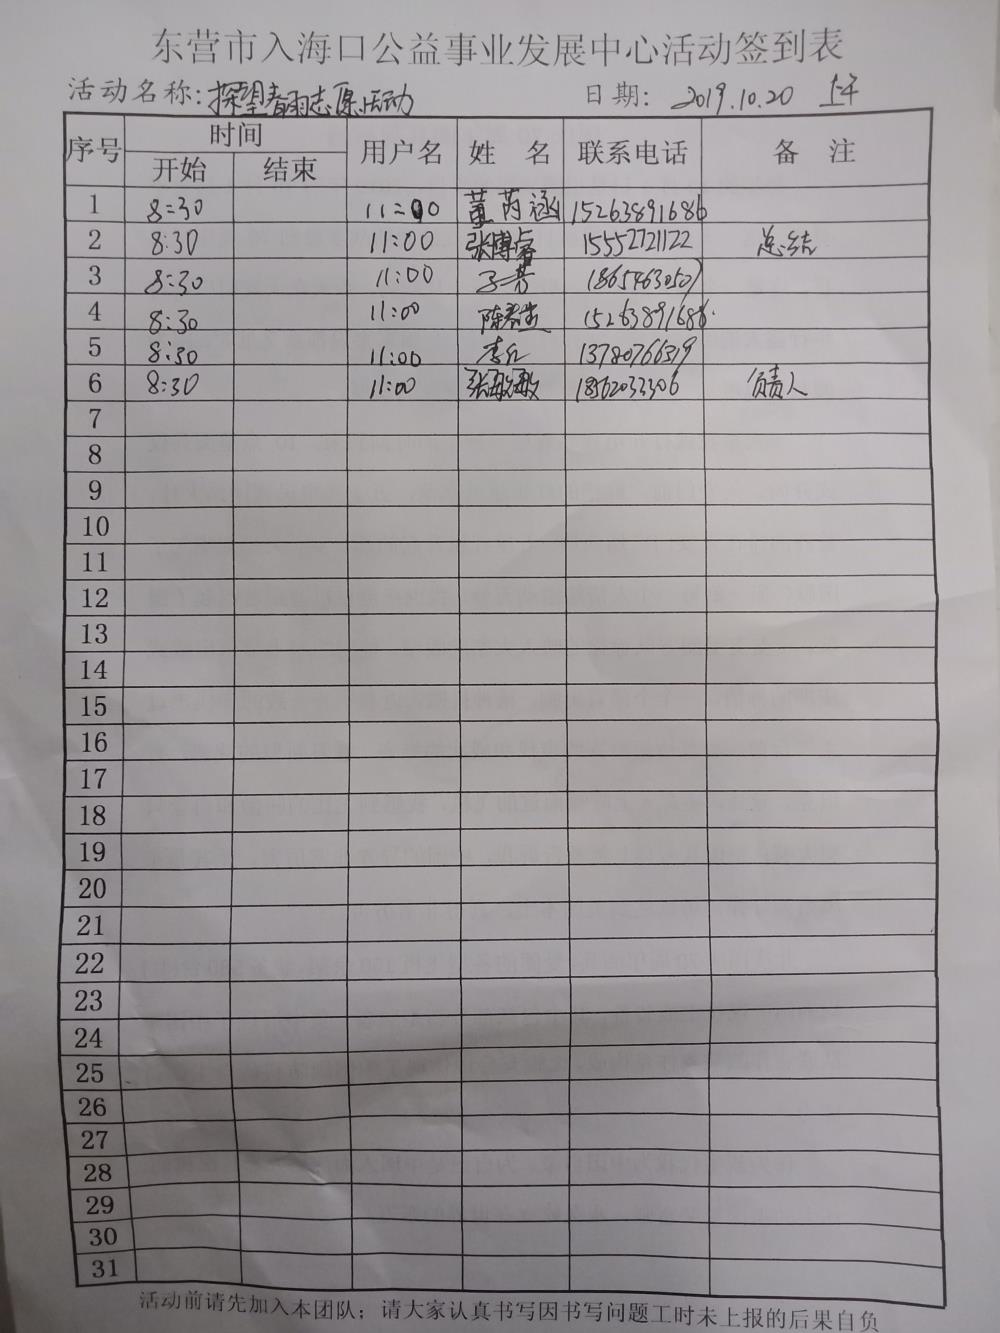 东营市入海口公益事业发展中心活动签到表
活动名称:探望春雨志愿活动 日期: 2019.10.20 上午
序号 时间 用户名 姓 名 联系电话 备 注
开始 结束
1 8:30 11:00 董芮涵 15263891686
2 8:30 11:00 张博睿 15552721122 总结
3 8:30 11:00 18654630507
4 8:30 11:00 陈 15263891686
5 8:30 11:00 李红 13780766319
6 8:30 11:00 张敏敏 18562033306 负责人
7
8
9
10
11
12
13
14
15
16
17
18
19
20
21
22
23
24
25
26
27
28
29
30
31
活动前请先加入本团队；请大家认真书写因书写问题工时未上报的后果自负